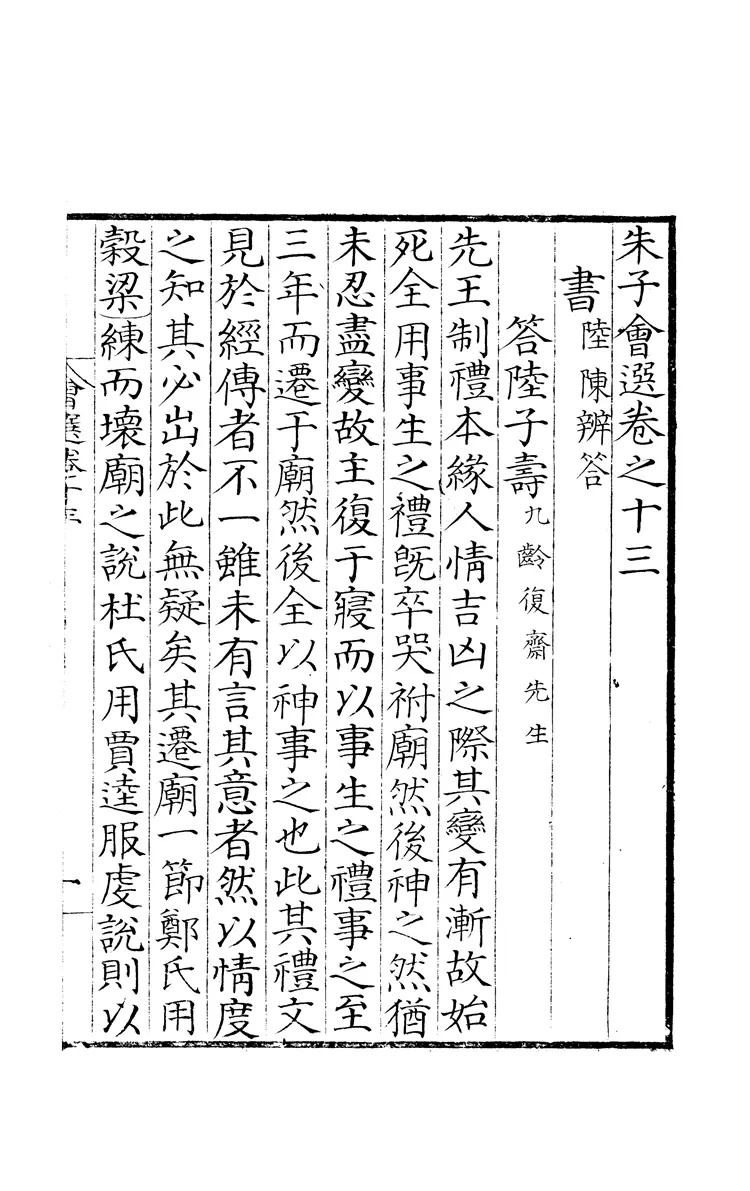 朱子會選卷之十三
書陸陳辨答
答陸子壽九齡復齋先生
先王制禮本緣人情吉凶之際其變有漸故始
死全用事生之禮旣卒哭祔廟然後神之然猶
未忍盡變故主復于寢而以事生之禮事之至
三年而遷于廟然後全以神事之也此其禮文
見於經傳者不一雖未有言其意者然以情度
之知其必出於此無疑矣其遷廟一節鄭氏用
穀梁練而壞廟之說杜氏用賈逵服虔說則以
會選卷十三
一